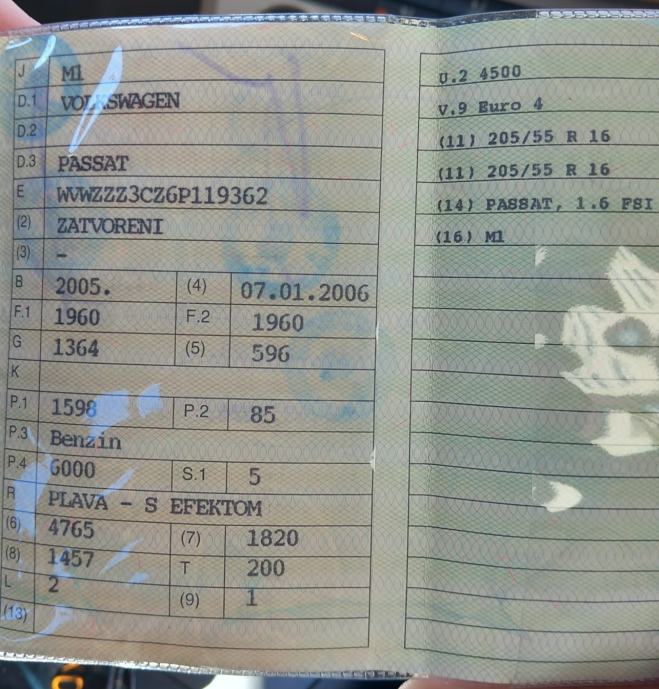 J M1
D.1 VOLKSWAGEN
D.2
D.3 PASSAT
E WVWZZZ3CZ6P119362
(2) ZATVORENI
(3) –
B 2005. (4) 07.01.2006
F.1 1960 F.2 1960
G 1364 (5) 596
K
P.1 1598 P.2 85
P.3 Benzin
P.4 6000 S.1 5
R PLAVA - S EFEKTOM
(6) 4765 (7) 1820
(8) 1457 T 200
L 2 (9) 1
(13)
U.2 4500
V.9 Euro 4
(11) 205/55 R 16
(11) 205/55 R 16
(14) PASSAT, 1.6 FSI
(16) M1